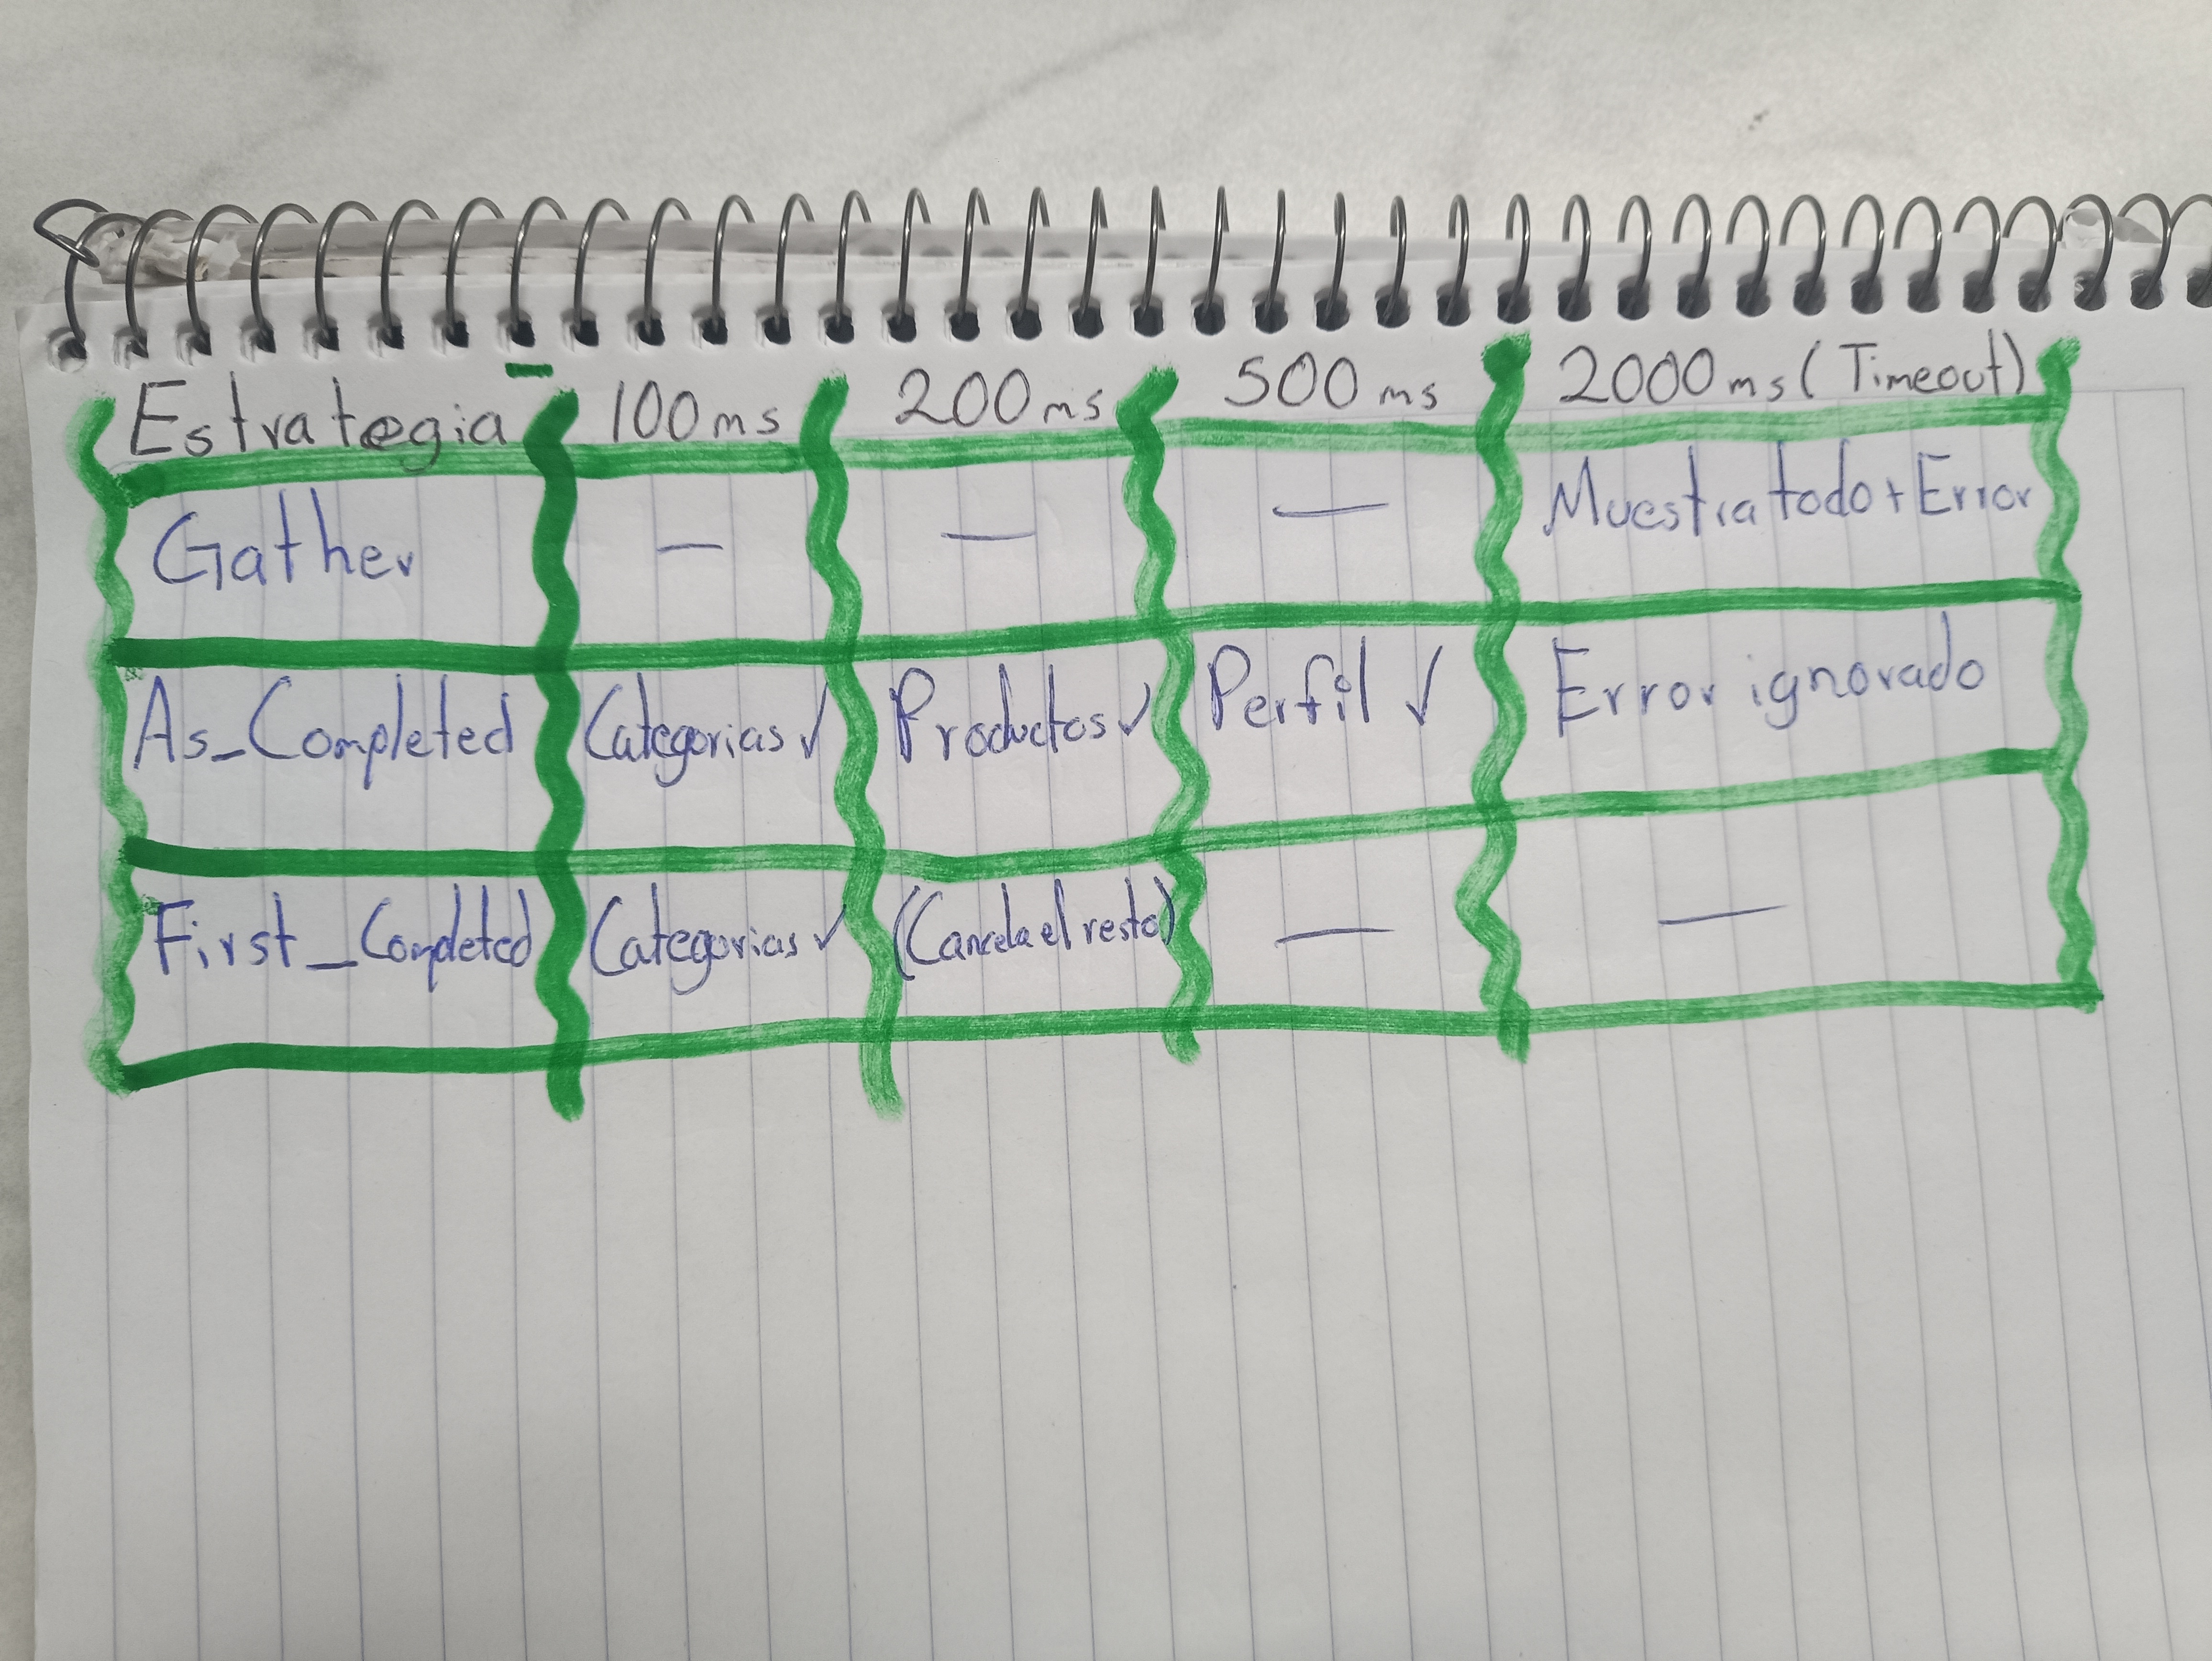 Estrategia 100ms 200ms 500ms 2000ms (Timeout)
Gather — — — Muestra todo + Error
As_Completed Categorias ✓ Productos ✓ Perfil ✓ Error ignorado
First_Completed Categorias ✓ (Cancela el resto) — —